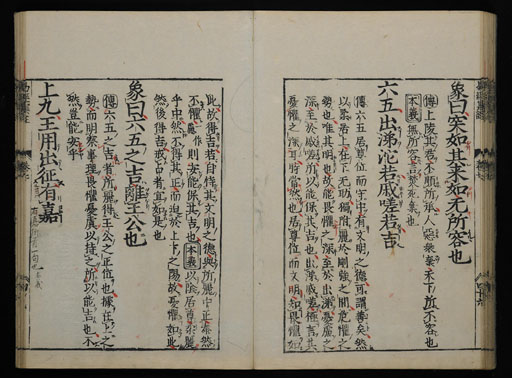 象曰突如其來如无所容也
傳上陵其君不順所承人惡衆棄天下所不容也
本義無所容言焚死棄也
六五出涕沱若戚嗟若吉
傳六五居尊位而守中有文明之德可謂善矣然
以柔居上在下无助獨附麗於剛強之間危懼之
勢也惟其明也故能畏懼之深至於出涕憂慮之
深至於戚嗟所以能保其吉也出涕戚嗟極言其
憂懼之深耳時當然也居尊位而文明知畏懼如
此故得吉若自恃其文明之德與所麗中正泰然
不懼則安能保其吉也本義以陰居尊柔麗
乎中然不得其正而迫於上下之陽故憂懼如此
然後得吉戒占者宜如是也
象曰六五之吉離王公也
傳六五之吉者所麗得王公之正位也據在上之
勢而明察事理畏懼憂虞以持之所以能吉也不
然豈能安乎
上九王用出征有嘉